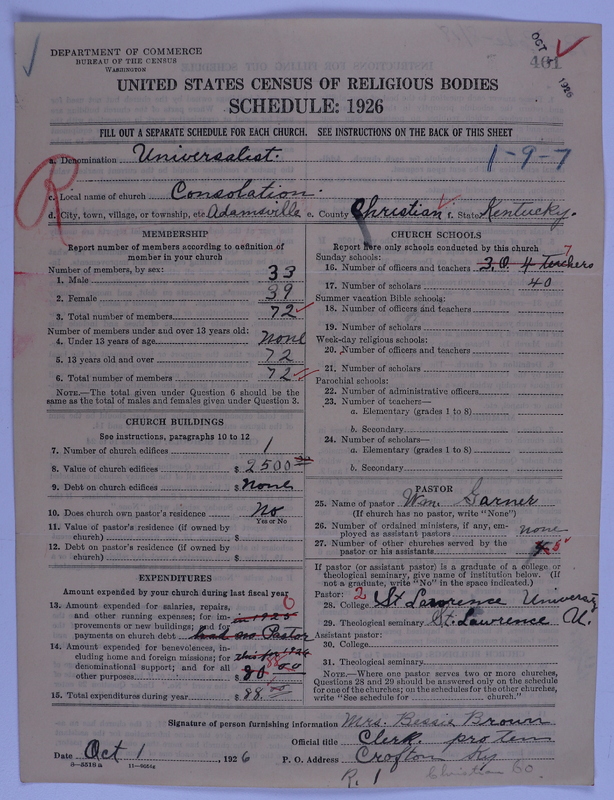 DEPARTMENT OF COMMERCE
BUREAU OF THE CENSUS
WASHINGTON
OCT
1926
461
UNITED STATES CENSUS OF RELIGIOUS BODIES
SCHEDULE: 1926
FILL OUT A SEPARATE SCHEDULE FOR EACH CHURCH. SEE INSTRUCTIONS ON THE BACK OF THIS SHEET
R
a. Denomination Universalist. 1-9-7
c. Local name of church Consolation.
d. City, town, village, or township, etc. Adamsville e. County Christian f. State Kentucky.
MEMBERSHIP
Report number of members according to definition of
member in your church
Number of members, by sex:
1. Male 33
2. Female 39
3. Total number of members 72
Number of members under and over 13 years old:
4. Under 13 years of age none
5. 13 years old and over 72
6. Total number of members 72
NOTE.—The total given under Question 6 should be
same as the total of males and females given under Question 3.
CHURCH BUILDINGS
See instructions, paragraphs 10 to 12
7. Number of church edifices 1
8. Value of church edifices $ 2500
9. Debt on church edifices $ none
10. Does church own pastor's residence? No
Yes or No
11. Value of pastor's residence (if owned by
church) $
12. Debt on pastor's residence (if owned by
church) $
EXPENDITURES
Amount expended by your church during last fiscal year
13. Amount expended for salaries, repairs, 0
and other running expenses; for im- in 1925
provements or new buildings; and for
payments on church debt had no Pastor
14. Amount expended for benevolences, in-
cluding home and foreign missions; for this for 1926
denominational support; and for all 88 00
other purposes $ 80
15. Total expenditures during year $ 88.
CHURCH SCHOOLS
Report here only schools conducted by this church
Sunday schools: 7
16. Number of officers and teachers 3.O. 4 teachers
17. Number of scholars 40
Summer vacation Bible schools:
18. Number of officers and teachers
19. Number of scholars
Week-day religious schools:
20. Number of officers and teachers
21. Number of scholars
Parochial schools:
22. Number of administrative officers
23. Number of teachers—
a. Elementary (grades 1 to 8)
b. Secondary
24. Number of scholars—
a. Elementary (grades 1 to 8)
b. Secondary
PASTOR
25. Name of pastor Wm. Garner
(If church has no pastor, write "None")
26. Number of ordained ministers, if any, em-
ployed as assistant pastors none
27. Number of other churches served by the
pastor or his assistants 5
If pastor (or assistant pastor) is a graduate of a college or
theological seminary, give name of institution below. (If
not a graduate, write "No" in the space indicated.)
Pastor: 2
28. College St Lawrence University
29. Theological seminary St. Lawrence U.
Assistant pastor:
30. College
31. Theological seminary
NOTE.—Where one pastor serves two or more churches,
Questions 28 and 29 should be answered only on the schedule
for one of the churches; on the schedules for the other churches,
write "See schedule for church."
Signature of person furnishing information Mrs. Bessie Brown
Official title Clerk. pro tem
Date Oct 1, 1926 P. O. Address Crofton Ky
8—5518 a
R. 1 Christian Co.